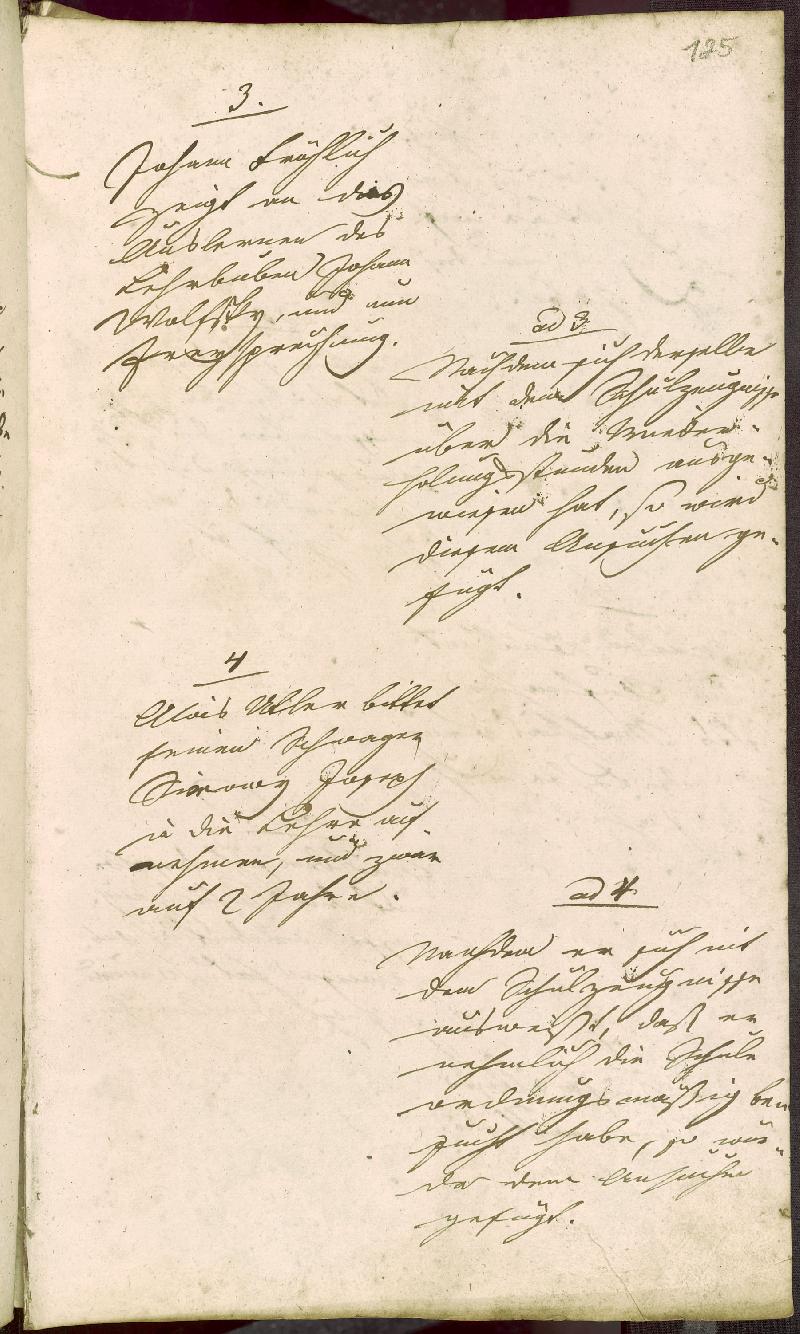 125
3.
Johann Fröhlich
zeigt an das
Auslernen des
Lehrbuben Johann
Wolfsky, und um
Freysprechung.
ad 3
Nachdem sich derselbe
mit dem Schulzeugnisse
über die Wieder-
holungsstunden ausge-
wiesen hat, so wird
diesem Ansuchen ge-
fügt.
4
Alois Utler bittet
seinen Schwager
Simony Joseph
in die Lehre auf
nehmen, und zwar
auf 2 Jahre.
ad 4
Nachdem er sich mit
dem Schulzeugnisse
ausweißt, daß er
nehmlich die Schule
ordnungsmäßig be
sucht habe, so wur-
de dem Ansuchen
gefügt.